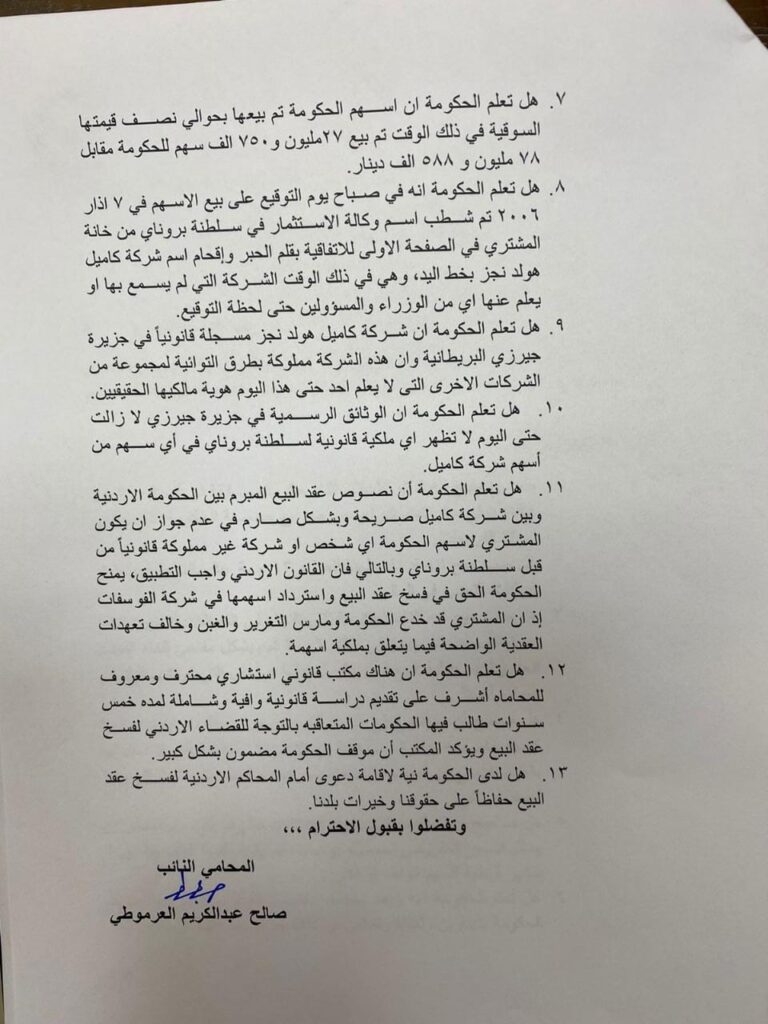 ٧. هل تعلم الحكومة ان اسهم الحكومة تم بيعها بحوالي نصف قيمتها
السوقية في ذلك الوقت تم بيع ٢٧مليون و ٧٥٠ الف سهم للحكومة مقابل
٧٨ مليون و ٥٨٨ الف دينار.
٨. هل تعلم الحكومة انه في صباح يوم التوقيع على بيع الاسهم في ٧ اذار
٢٠٠٦ تم شطب اسم وكالة الاستثمار في سلطنة بروناي من خانة
المشتري في الصفحة الاولى للاتفاقية بقلم الحبر وإقحام اسم شركة كاميل
هولد نجز بخط اليد، وهي في ذلك الوقت الشركة التي لم يسمع بها او
يعلم عنها اي من الوزراء والمسؤولين حتى لحظة التوقيع.
٩. هل تعلم الحكومة ان شركة كاميل هولد نجز مسجلة قانونياً في جزيرة
جيرزي البريطانية وان هذه الشركة مملوكة بطرق التوانية لمجموعة من
الشركات الاخرى التى لا يعلم احد حتى هذا اليوم هوية مالكيها الحقيقيين.
١٠. هل تعلم الحكومة ان الوثائق الرسمية في جزيرة جيرزي لا زالت
حتى اليوم لا تظهر اي ملكية قانونية لسلطنة بروناي في أي سهم من
أسهم شركة كاميل.
١١. هل تعلم الحكومة أن نصوص عقد البيع المبرم بين الحكومة الاردنية
وبين شركة كاميل صريحة وبشكل صارم في عدم جواز ان يكون
المشتري لاسهم الحكومة اي شخص او شركة غير مملوكة قانونياً من
قبل سلطنة بروناي وبالتالي فان القانون الاردني واجب التطبيق، يمنح
الحكومة الحق في فسخ عقد البيع واسترداد اسهمها في شركة الفوسفات
إذ ان المشتري قد خدع الحكومة ومارس التغرير والغبن وخالف تعهدات
العقدية الواضحة فيما يتعلق بملكية اسهمة.
١٢. هل تعلم الحكومة ان هناك مكتب قانوني استشاري محترف ومعروف
للمحاماه أشرف على تقديم دراسة قانونية وافية وشاملة لمده خمس
سنوات طالب فيها الحكومات المتعاقبه بالتوجة للقضاء الاردني لفسخ
عقد البيع ويؤكد المكتب أن موقف الحكومة مضمون بشكل كبير.
١٣. هل لدى الحكومة نية لاقامة دعوى أمام المحاكم الاردنية لفسخ عقد
البيع حفاظاً على حقوقنا وخيرات بلدنا.
وتفضلوا بقبول الاحترام ،،،
المحامي النائب
صالح عبدالكريم العرموطي